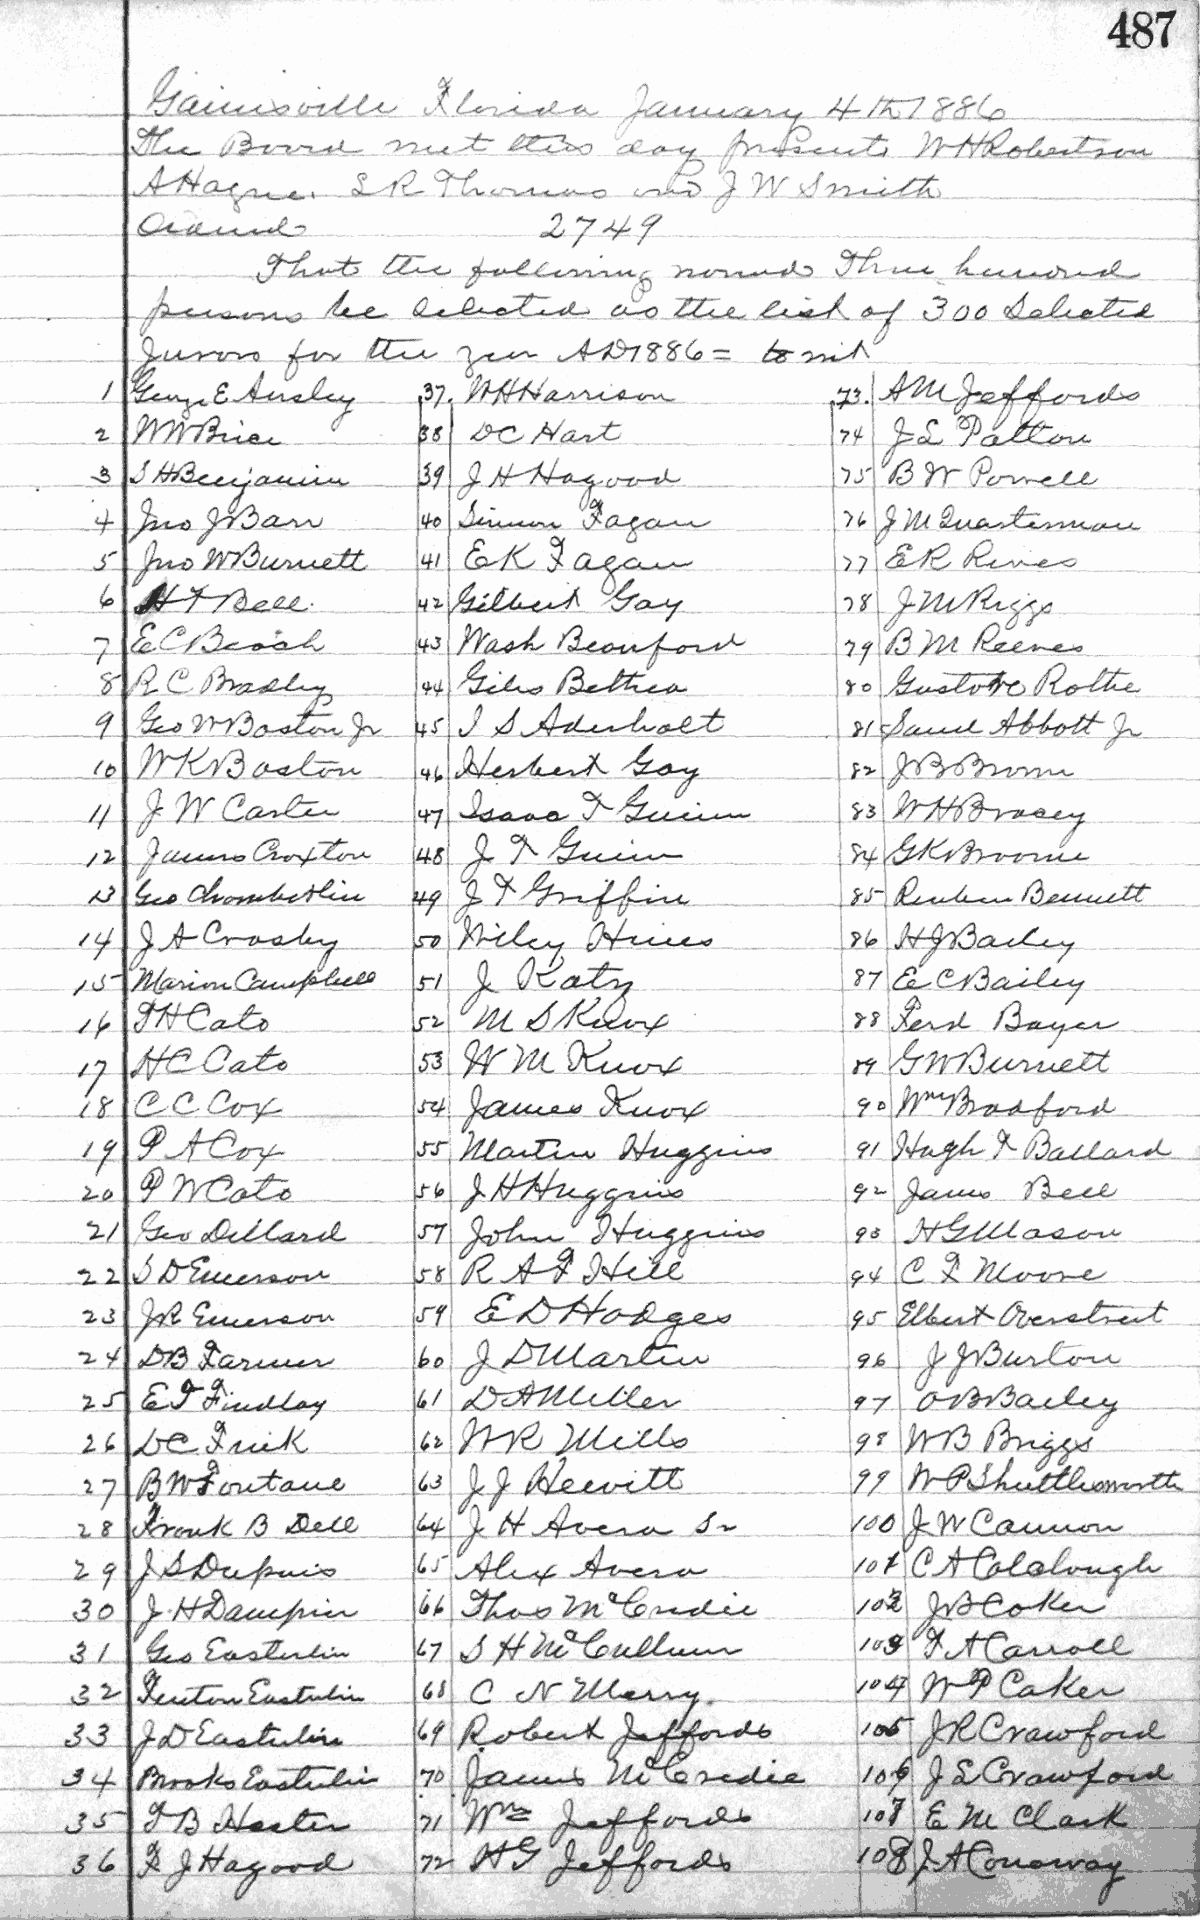 487
Gainesville Florida January 4th 1886
The Board met this day present W H Robertson
A Hague. L R Thomas and J W Smith
2749
That the following named Three hundred
persons be selected as the list of 300 Selected
Jurors for the year AD 1886 = to wit
1 George E Ansley
2 W W Brice
3 S H Benjamin
4 Jno J Barr
5 Jno W Burnett
6 H F Bell.
7 E C Beach
8 R C Bradley
9 Geo W Boston Jr
10 W K Boston
11 J W Carter
12 James Croxton
13 Geo Chamberlin
14 J A Crosby
15 Marion Campbell
16 F H Cato
17 H C Cato
18 C C Cox
19 P A Cox
20 P W Cato
21 Geo Dillard
22 S D Emerson
23 J R Emerson
24 D B Farmer
25 E F Findlay
26 D C Frink
27 B W Fontane
28 Frank B Dell
29 J S Dupuis
30 J H Dampier
31 Geo Easterlin
32 Fenton Easterlin
33 J D Easterlin
34 Brooks Easterlin
35 F B Hester
36 F J Hagood
37. W H Harrison
38 D C Hart
39 J H Hagood
40 Simon Fagan
41 E K Fagan
42 Gilbert Gay
43 Wash Beauford
44 Giles Bethea
45 I S Aderholt
46 Herbert Gay
47 Isaac F Guinn
48 J F Guinn
49 J F Griffin
50 Wiley Hines
51 J Katz
52 M S Knox
53 W M Knox
54 James Knox
55 Martin Huggins
56 J H Huggins
57 John Huggins
58 R A F Hill
59 E D Hodges
60 J D Martin
61 D A Miller
62 W R Mills
63 J J Hewitt
64 J H Avera Sr
65 Alex Avera
66 Thos McCredie
67 S H McCullum
68 C N Merry.
69 Robert Jeffords
70 James McCredie
71 Wm Jeffords
72 H G Jeffords
73. A M Jeffords
74 J L Patton
75 B W Powell
76 J M Quarterman
77 E R Rives
78 J M Riggs
79 B M Reeves
80 Gustave Rothe
81 Saml Abbott Jr
82 J B Brown
83 W H Bracey
84 G K Broome
85 Reuben Bennett
86 H J Bailey
87 E C Bailey
88 Ferd Bayer
89 G W Burnett
90 Wm Bradford
91 Hugh F Ballard
92 James Bell
93 H G Mason
94 C F Moore
95 Elbert Overstreet
96 J J Burton
97 O B Bailey
98 W B Briggs
99 W P Shuttlesworth
100 J W Cannon
101 C A Colclough
102 J B Coker
103 F A Carroll
104 W P Caker
105 J R Crawford
106 J L Crawford
107 E M Clark
108 J A Conaway